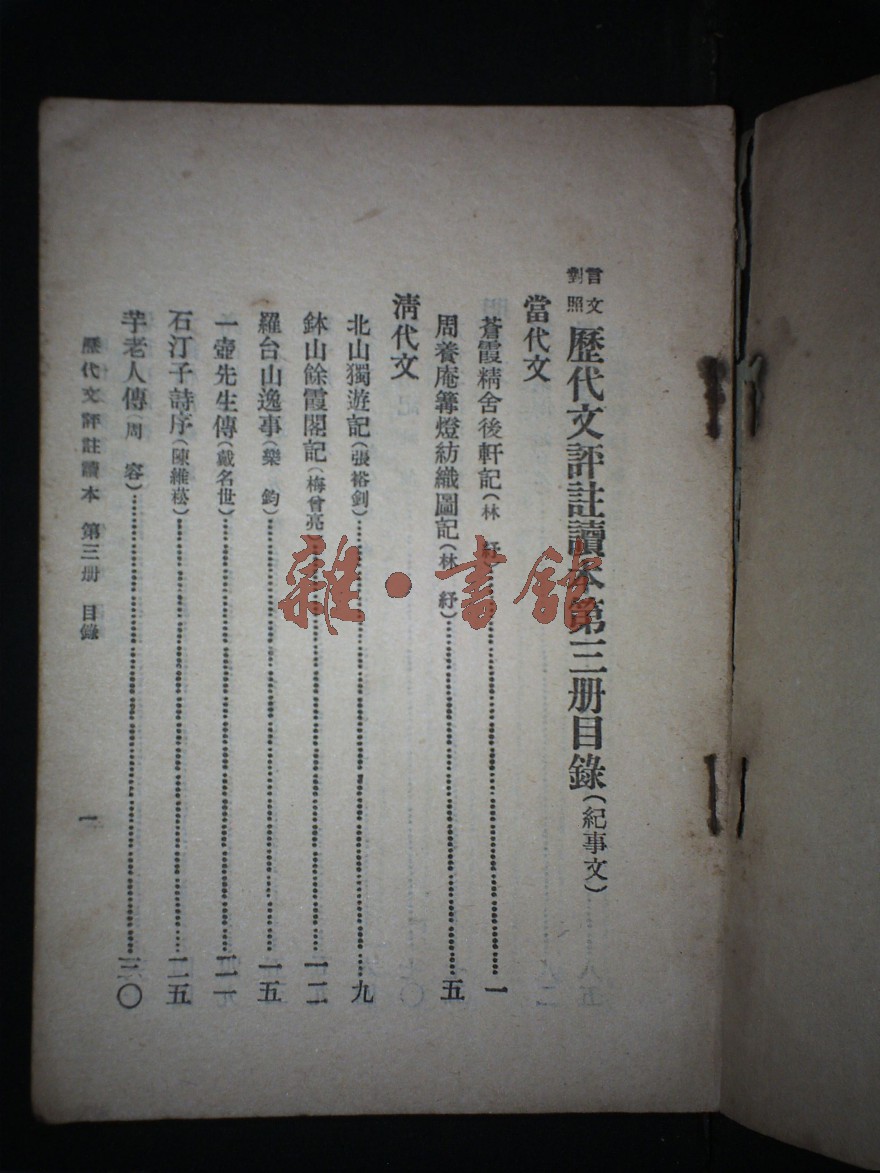 言文對照歷代文評註讀本第三册目錄(紀事文)
當代文
蒼霞精舍後軒記(林 紓)……一
周養庵篝燈紡織圖記(林 紓)……五
淸代文
北山獨遊記(張裕釗)……九
鉢山餘霞閣記(梅曾亮)……一二
羅台山逸事(樂 鈞)……一五
一壺先生傳(戴名世)……二一
石汀子詩序(陳維崧)……二五
芋老人傳(周 容)……三〇
歷代文評註讀本 第三册 目錄
一
雜·書館